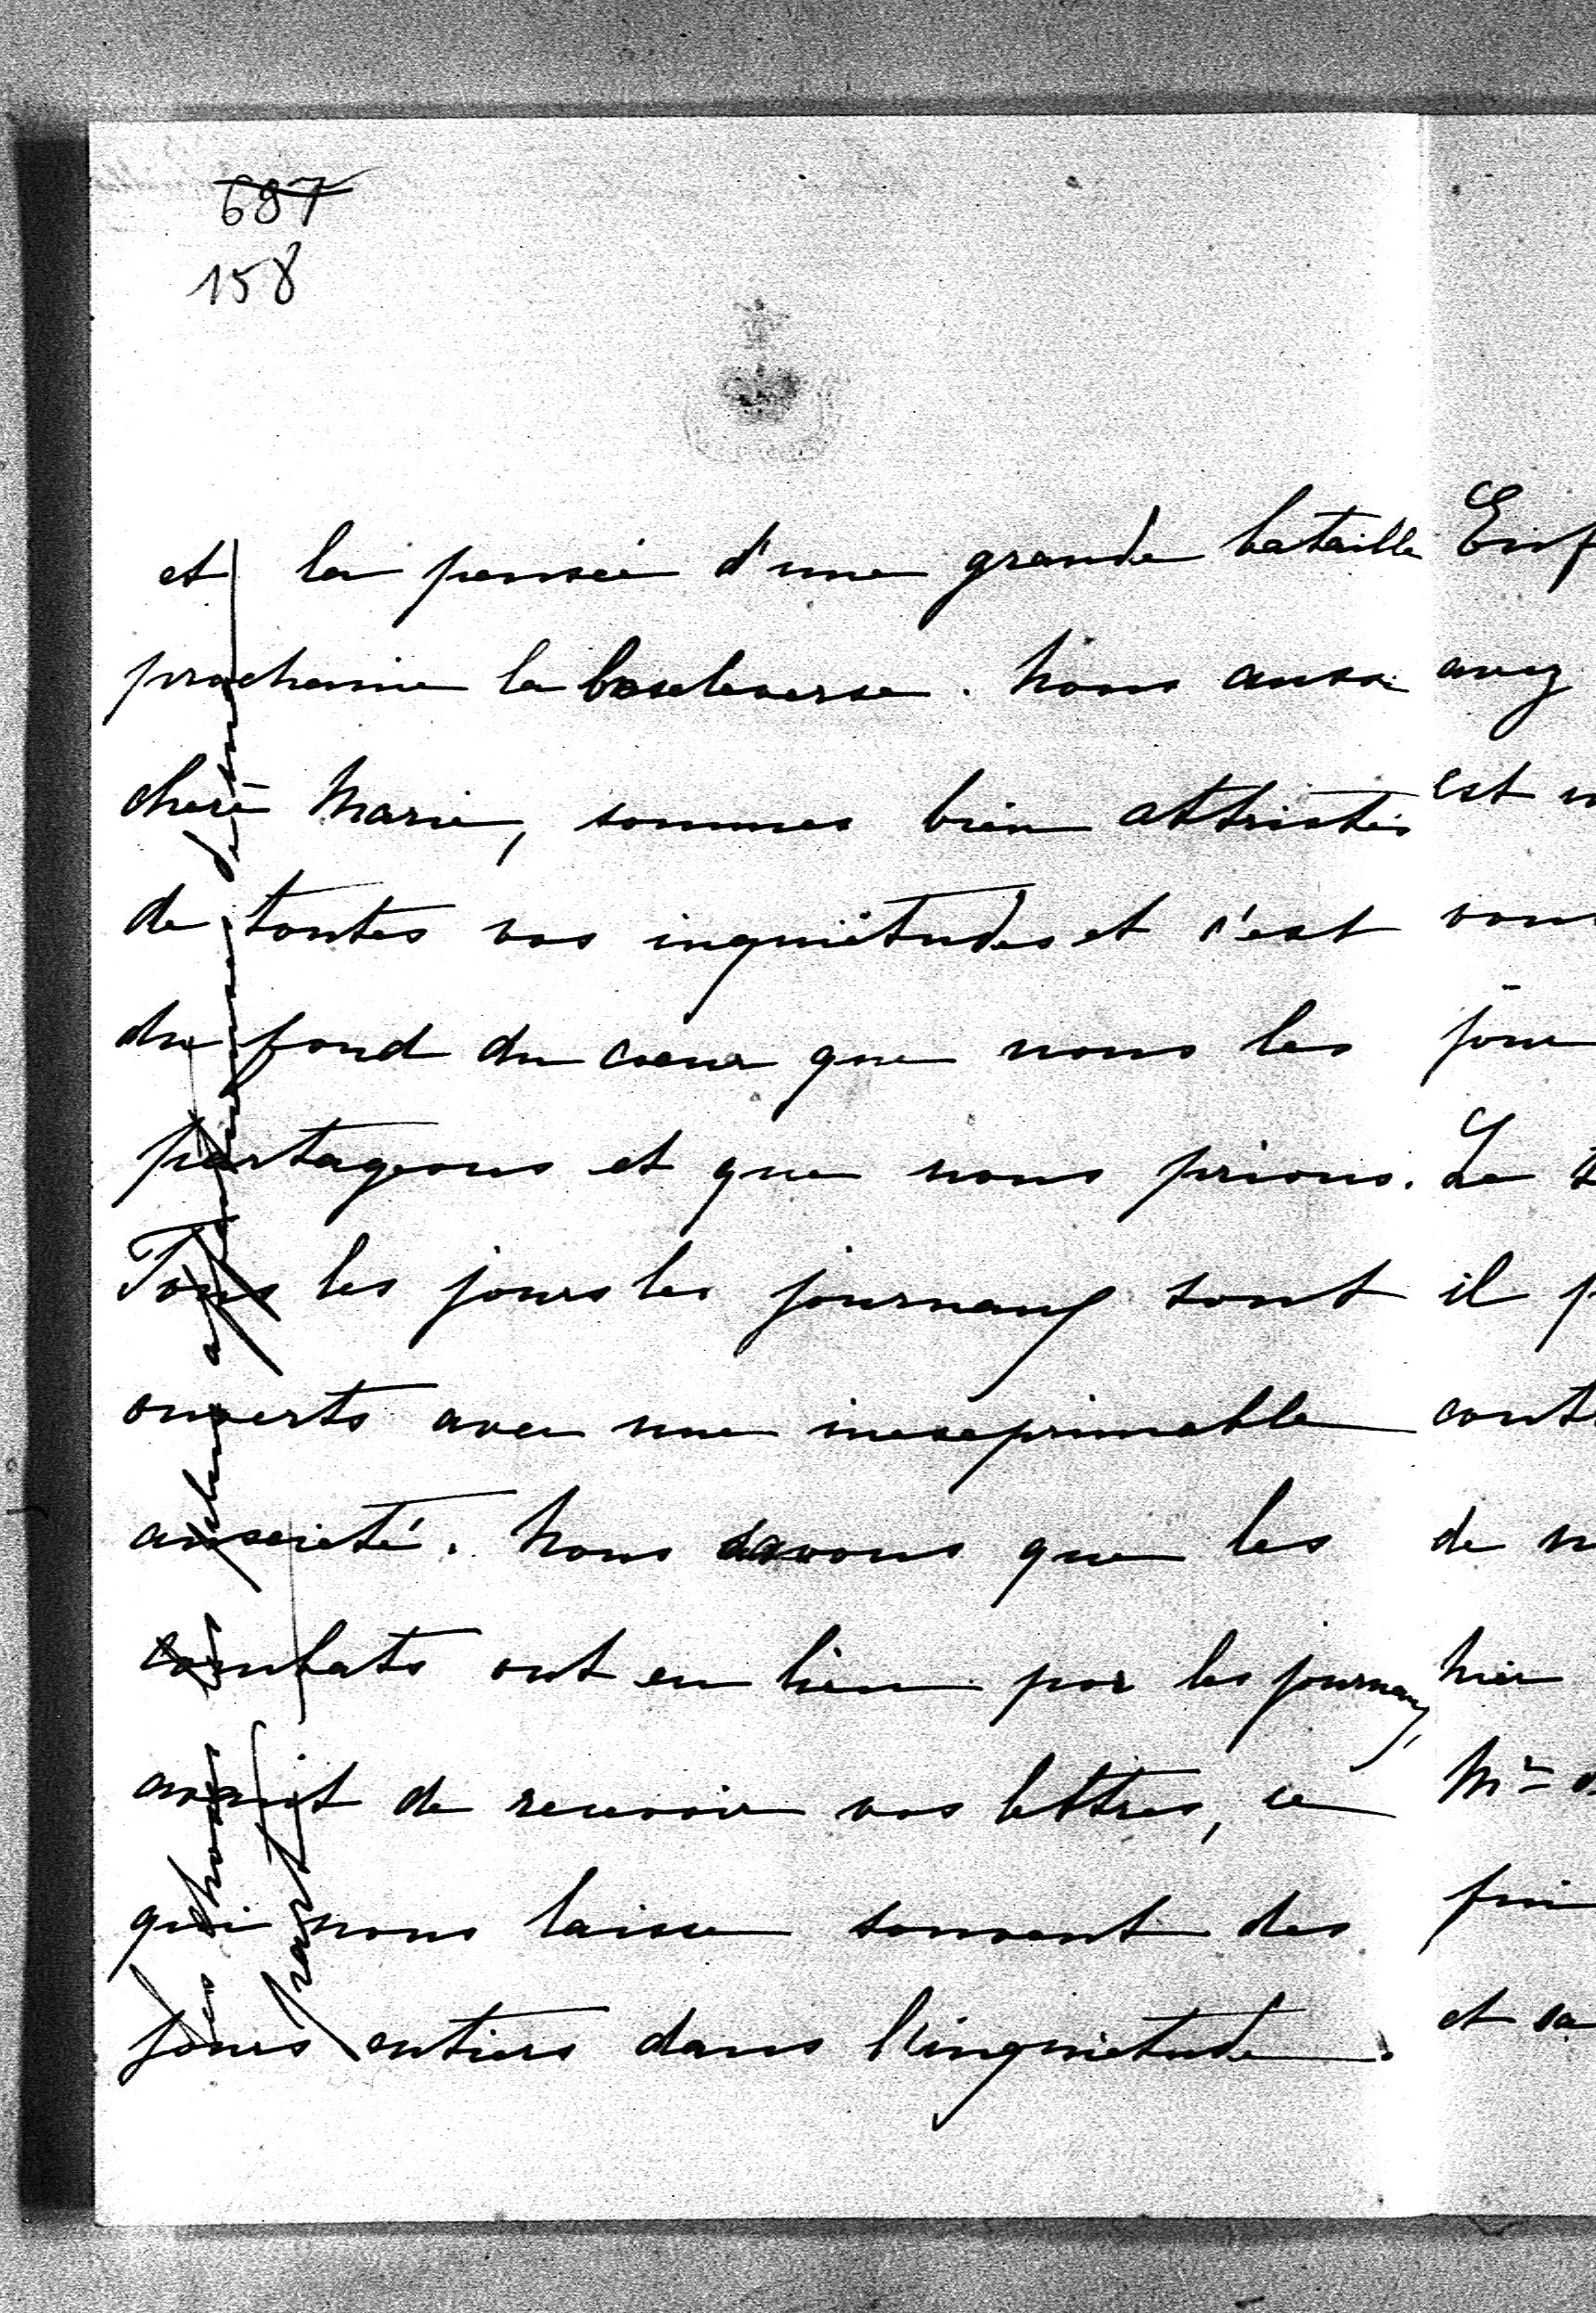 687
158
et la pensée d'une grande bataille
prochaine la bouleverse. Nous aussi
chère Marie, sommes bien attristés
de toutes vos inquiétudes et c'est
du fond du cœur que nous les
partageons et que nous prions.
Tous les jours les journaux sont
ouverts avec une inexprimable
anxiété. Nous savons que les
combats ont eu lieu par les journaux,
avant de recevoir vos lettres, ce
qui nous laisse souvent des
jours entiers dans l'inquiétude.
les choses les plus affectueuses de ma
part
avez
est
il
de
hier
et